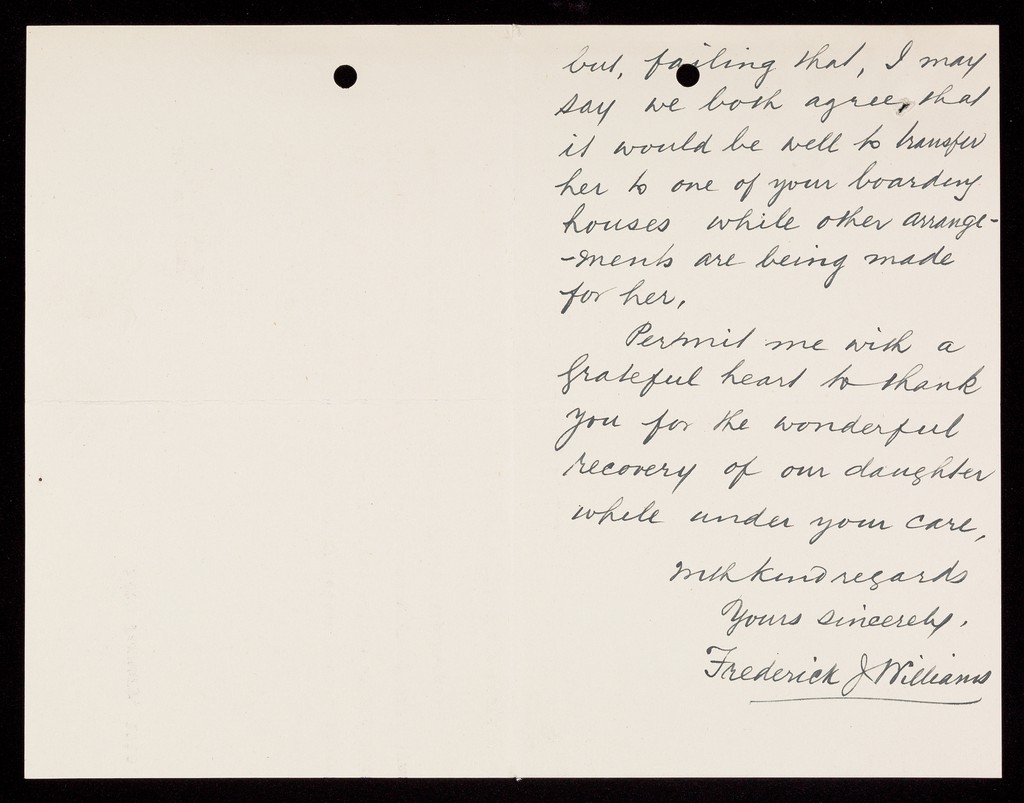 but, failing that, I may
say we both agree, that
it would be well to transfer
her to one of your boarding
houses while other arrange-
-ments are being made
for her,
Permit me with a
grateful heart to thank
you for the wonderful
recovery of our daughter
while under your care,
with kind regards
Yours sincerely,
Frederick J Williams